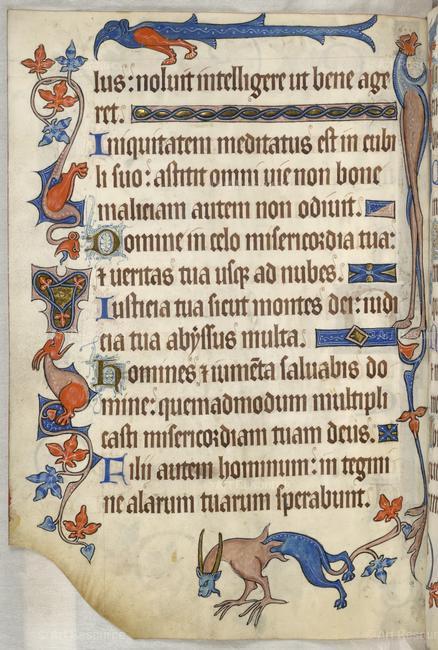 lus: noluit intelligere ut bene age
ret.
Iniquitatem meditatus est in cubi
li suo: astitit omni uie non bone
maliciam autem non odiuit.
Domine in celo misericordia tua:
⁊ ueritas tua usq; ad nubes.
Iusticia tua sicut montes dei: iudi
cia tua abyssus multa.
Homines ⁊ iumēta saluabis do
mine: quemadmodum multipli
casti misericordiam tuam deus.
Filii autem hominum: in tegmi
ne alarum tuarum sperabunt.